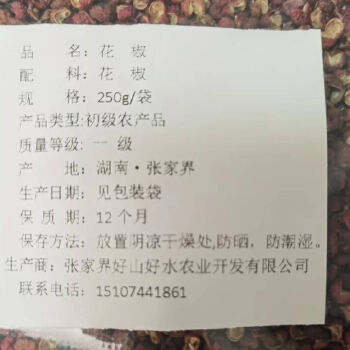 品 名：花 椒
配 料：花 椒
规 格：250g/袋
产品类型:初级农产品
质量等级: 一 级
产 地：湖南·张家界
生产日期：见包装袋
保 质 期：12个月
保存方法：放置阴凉干燥处,防晒，防潮湿。
生产商：张家界好山好水农业开发有限公司
联系电话：15107441861